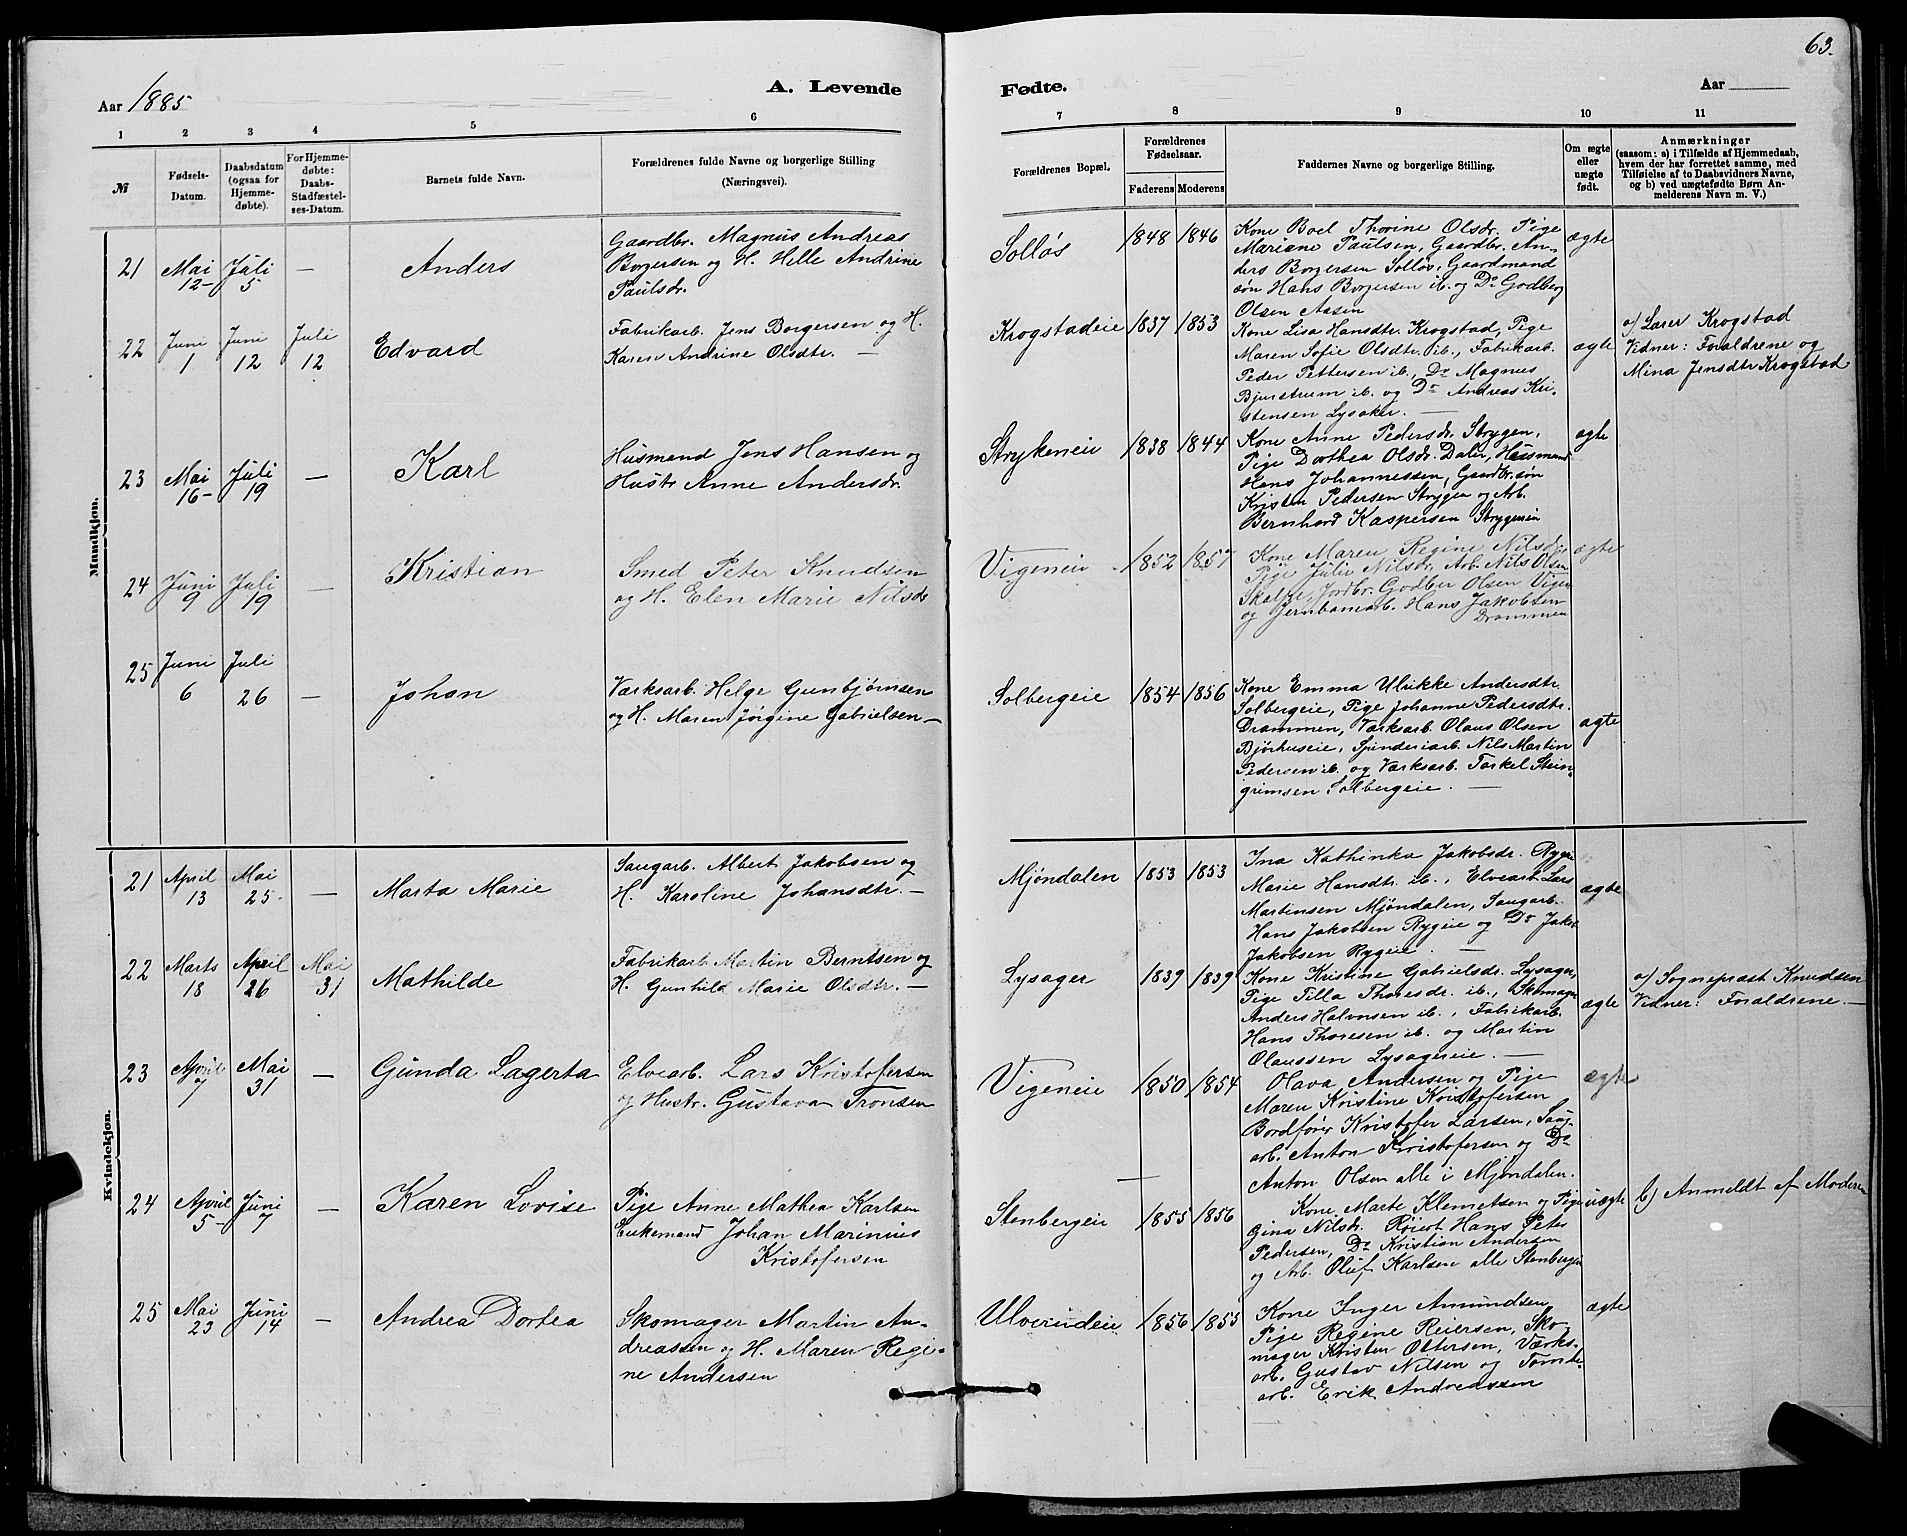 63.
Aar 1885
A. Levende
Fødte.
Aar
1 2 3 4 5 6 7 8 9 10 11
№
Fødsels-
Datum.
Daabsdatum
(ogsaa for
Hjemme-
døbte).
For Hjemme-
døbte:
Daabs-
Stadfæstel-
ses-Datum.
Barnets fulde Navn.
Forældrenes fulde Navne og borgerlige Stilling
(Næringsvei).
Forældrenes Bopæl.
Forældrenes
Fødselsaar.
Faderens Moderens
Faddernes Navne og borgerlige Stilling.
Om ægte
eller
uægte
født.
Anmærkninger
(saasom: a) i Tilfælde af Hjemmedaab,
hvem der har forrettet samme, med
Tilføielse af to Daabsvidners Navne,
og b) ved uægtefødte Børn An-
melderens Navn m. V.)
Mandkjøn.
21
Mai
12-
Juli
5
—
Anders
Gaardbr. Magnus Andreas
Borgersen og H. Helle Andrine
Paulsdr.
Solløs
1848 1846
Kone Boel Thorine Olsdr. Pige
Mariane Paulsen, Gaardbr. An-
ders Borgersen Solløs, Gaardmand
søn Hans Borgersen ib. og Do Godberg
Olsen Aasen
ægte
22
Juni
1
Juni
12
Juli
12
Edvard
Fabrikarb. Jens Borgersen og H.
Karen Andrine Olsdtr. —
Krogstadeie
1837 1853
Kone Lisa Hansdtr. Krogstad, Pige
Maren Sofie Olsdtr. ib., Fabrikarb.
Peder Pettersen ib., Do Magnus
Bjurstrum ib. og Do Andreas Kri-
stensen Lysaker. —
ægte
a) Lærer Krogstad
Vidner: Forældrene og
Mina Jensdtr Krogstad
23
Mai
16-
Juli
19
—
Karl
Husmand Jens Hansen og
Hustr Anne Andersdr.
Strykeneie
1838 1844
Kone Anne Pedersdr. Strygen,
Pige Dorthea Olsdr. Dalen, Husmand
Hans Johannessen, Gaardbr.søn
Kristen Pedersen Strygen og Arb.
Bernhard Kaspersen Strygenein
ægte
24
Juni
9
Juli
19
—
Kristian
Smed Peter Knudsen
og H. Elen Marie Nilsdr
Vigeneie
1852 1857
Kone Maren Regine Nilsdr,
Pige Julie Nilsdr. Arb. Nils Olsen
Jordbr. Godber Olsen Vigen
og Jernbanearb. Hans Jakobsen
Drammen
ægte
25
Juni
6
Juli
26
—
Johan
Værksarb. Helge Gunbjørnsen
og H. Maren Jørgine Gabrielsen —
Solbergeie
1854 1856
Kone Emma Ulrikke Andersdtr.
Solbergeie, Pige Johanne Pedersdtr.
Drammen, Værksarb. Olaus Olsen
Bjørhuseie, Spinderiarb. Nils Martin
Pedersen ib. og Værksarb. Torkel Stein-
grimsen Solbergeie. —
ægte
Kvindekjøn.
21
April
13
Mai
25-
—
Marta Marie
Saugarb. Albert Jakobsen og
H. Karoline Johansdtr. —
Mjøndalen
1853 1853
Ina Kathinka Jakobsdr. Rygeie
Marie Hansdtr. ib., Elvearb. Lars
Martinsen Mjøndalen, Saugarb.
Hans Jakobsen Rygeie og Do Jakob
Jakobsen Rygeie —
ægte
22
Marts
18
April
26
Mai
31
Mathilde
Fabrikarb. Martin Berntsen og
H. Gunhild Marie Olsdtr. —
Lysager
1839 1839
Kone Kristine Gabrielsdr. Lysager,
Pige Tilla Thoresdr. ib., Skomager
Anders Halvorsen ib., Fabrikarb.
Hans Thoresen ib. og Martin
Olaussen Lysagereie. —
ægte
a) Sognepræst Knudsen
Vidner: Forældrene. —
23
April
7
Mai
31
—
Gunda Lagerta
Elvearb. Lars Kristofersen
og Hustr. Gustava Tronsen
Vigeneie
1850 1854
Olava Andersen og Pige
Maren Kristine Kristofersen
Bordfører Kristofer Larsen, Saug-
arb. Anton Kristofersen og Do
Anton Olsen alle i Mjøndalen.
ægte
24
April
5-
Juni
7
—
Karen Lovise
Pige Anne Mathea Karlsen
Enkemand Johan Marinius
Kristofersen
Stenbergeie
1855 1856
Kone Marte Klemetsen og Pige
Gina Nilsdr. Hans Peter
Pedersen, Do Kristian Andersen
og Arb. Oluf Karlsen alle Stenbergei
uægte
b) Anmeldt af Moderen
25
Mai
23
Juni
14
—
Andrea Dortea
Skomager Martin An-
dreassen og H. Maren Regi-
ne Andersen
Ulverudeie
1856 1855
Kone Inger Amundsen
Pige Regine Reiersen, Sko-
mager Kristen Ottersen, Værks-
arb. Gustav Nilsen og Tomte-
arb. Erik Andreassen
ægte